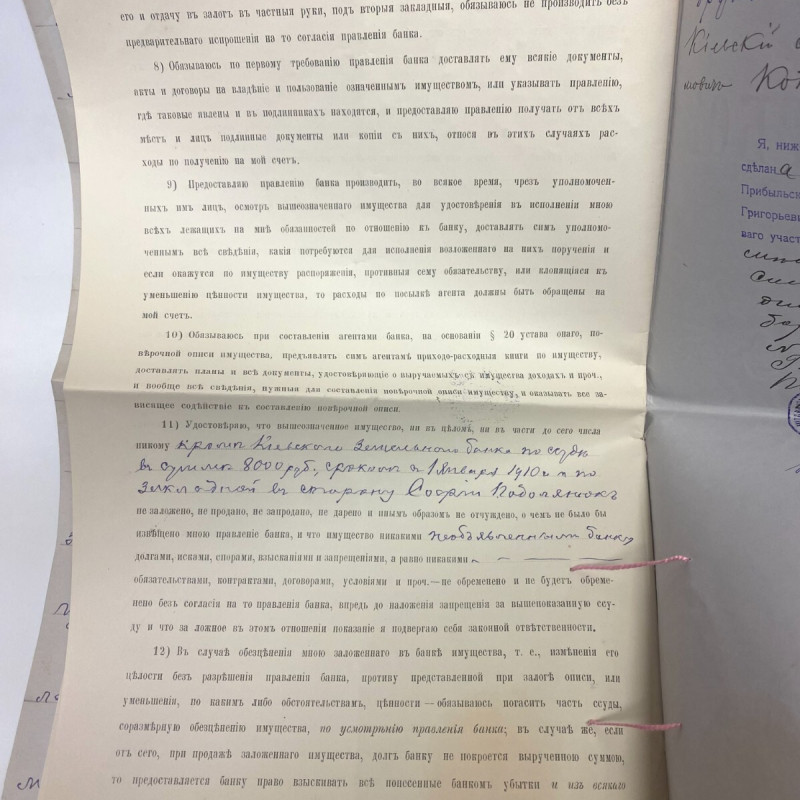 его и отдачу въ залогъ въ частныя руки, подъ вторыя закладныя, обязываюсь не производить безъ
предварительнаго испрошенія на то согласія правленія банка.
8) Обязываюсь по первому требованію правленія банка доставлять ему всякіе документы,
акты и договоры на владѣніе и пользованіе означеннымъ имуществомъ, или указывать правленію,
гдѣ таковые явлены и въ подлинникахъ находятся, и предоставляю правленію получать отъ всѣхъ
мѣстъ и лицъ подлинные документы или копіи съ нихъ, относя въ этихъ случаяхъ рас-
ходы по полученію на мой счетъ.
9) Предоставляю правленію банка производить, во всякое время, чрезъ уполномочен-
ныхъ имъ лицъ, осмотръ вышеозначеннаго имущества для удостовѣренія въ исполненіи мною
всѣхъ лежащихъ на мнѣ обязанностей по отношенію къ банку, доставлять симъ уполномо-
ченнымъ всѣ свѣдѣнія, какія потребуются для исполненія возложеннаго на нихъ порученія и
если окажутся по имуществу распоряженія, противныя сему обязательству, или клонящіяся къ
уменьшенію цѣнности имущества, то расходы по посылкѣ агента должны быть обращены на
мой счетъ.
10) Обязываюсь при составленіи агентами банка, на основаніи § 20 устава онаго, по-
вѣрочной описи имущества, предъявлять симъ агентамъ приходо-расходныя книги по имуществу,
доставлять планы и всѣ документы, удостовѣряющіе о выручаемыхъ съ имущества доходахъ и проч.,
и вообще всѣ свѣдѣнія, нужныя для составленія повѣрочной описи имуществу, и оказывать все за-
висящее содѣйствіе къ составленію повѣрочной описи.
11) Удостовѣряю, что вышеозначенное имущество, ни въ цѣломъ, ни въ части до сего числа
никому кромѣ Кіевскаго Земельнаго банка по ссудѣ
въ суммѣ 8000 руб., срокомъ съ 1 Января 1910 г. и по
закладной въ сторону Софіи Подолянюкъ
не заложено, не продано, не запродано, не дарено и инымъ образомъ не отчуждено, о чемъ не было бы
извѣщено мною правленіе банка, и что имущество никакими необъявленными банку
долгами, исками, спорами, взысканіями и запрещеніями, а равно никакими
обязательствами, контрактами, договорами, условіями и проч.—не обременено и не будетъ обреме-
нено безъ согласія на то правленія банка, впредь до наложенія запрещенія за вышепоказанную ссу-
ду и что за ложное въ этомъ отношеніи показаніе я подвергаю себя законной отвѣтственности.
12) Въ случаѣ обезцѣненія мною заложеннаго въ банкѣ имущества, т. е., измѣненія его
цѣлости безъ разрѣшенія правленія банка, противу представленной при залогѣ описи, или
уменьшенія, по какимъ либо обстоятельствамъ, цѣнности — обязываюсь погасить часть ссуды,
соразмѣрную обезцѣненію имущества, по усмотрѣнію правленія банка; въ случаѣ же, если
отъ сего, при продажѣ заложеннаго имущества, долгъ банку не покроется вырученною суммою,
то предоставляется банку право взыскивать всѣ понесенные банкомъ убытки и изъ всякаго
Кіевскій
Я, ниж
сдѣлан а
Прибыльск
Григорьеви
ваго участ